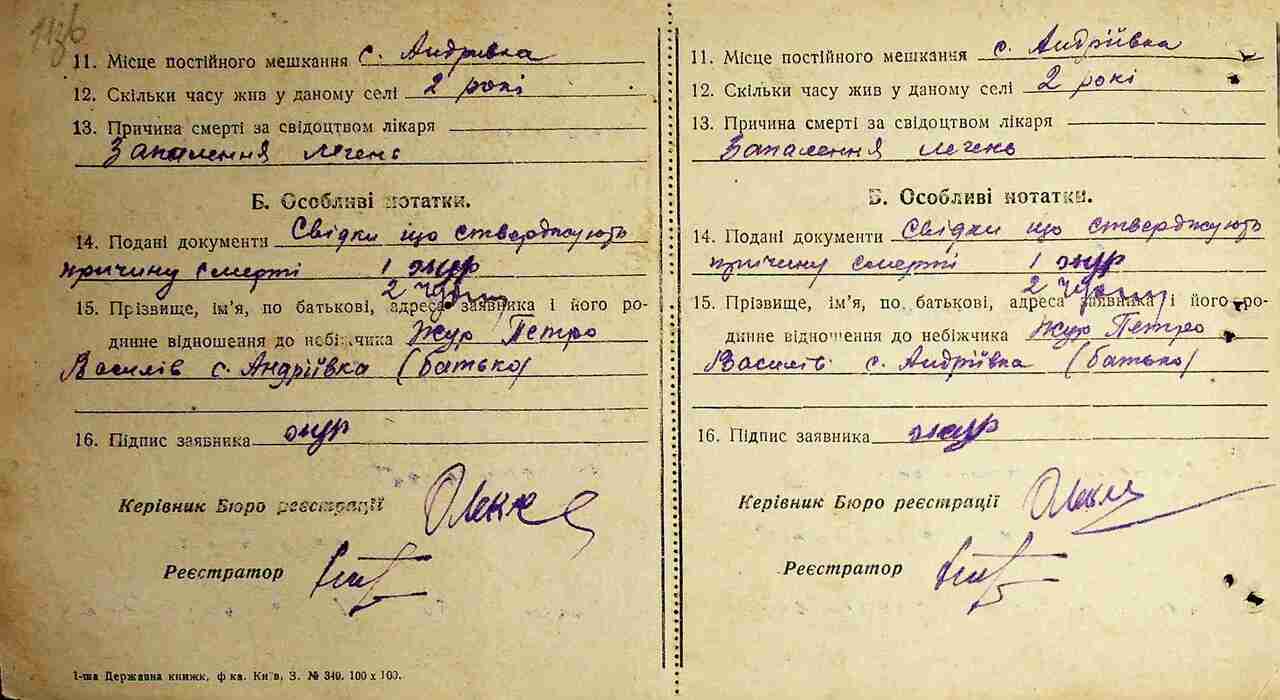 1136
11. Місце постійного мешкання с. Андрівка
12. Скільки часу жив у даному селі 2 рокі
13. Причина смерті за свідоцтвом лікаря
Запалення легень
Б. Особливі нотатки.
14. Подані документи Свідки що стверджують
причину смерті 1 Жур
2
15. Прізвище, ім’я, по батькові, адреса заявника і його ро-
динне відношення до небіжчика Жур Петро
Василів с. Андріївка (батько)
16. Підпис заявника Жур
Керівник Бюро реєстрації
Реєстратор
1-ша Державна книжк. ф-ка. Київ, З. № 340. 100 х 100.
11. Місце постійного мешкання с. Андрїівка
12. Скільки часу жив у даному селі 2 рокі
13. Причина смерті за свідоцтвом лікаря
Запалення легень
Б. Особливі нотатки.
14. Подані документи Свідки що стверджують
причину смерті 1 Жур
2
15. Прізвище, ім’я, по батькові, адреса заявника і його ро-
динне відношення до небіжчика Жур Петро
Василів с. Андріївка (батько)
16. Підпис заявника Жур
Керівник Бюро реєстрації
Реєстратор